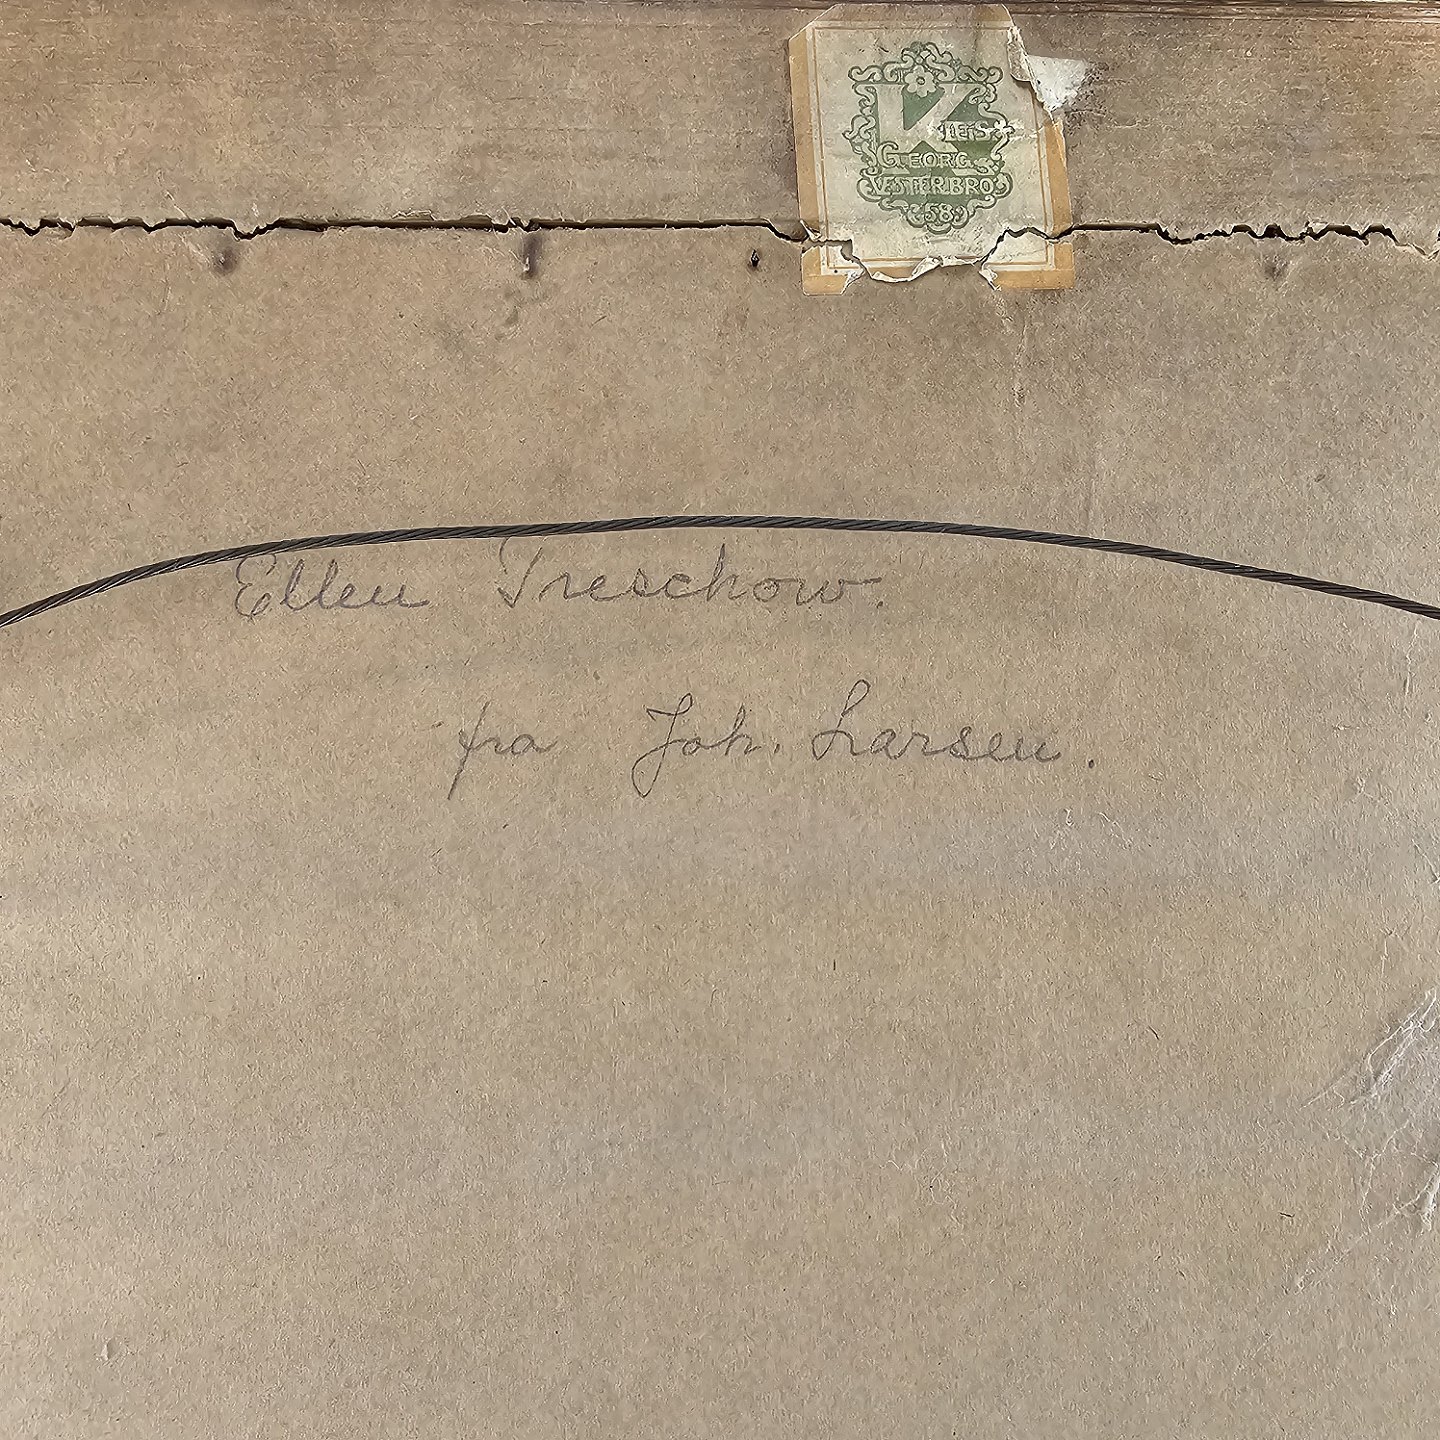 GEORG
VESTERBRO
Ellen Treschow.
fra Joh. Larsen.